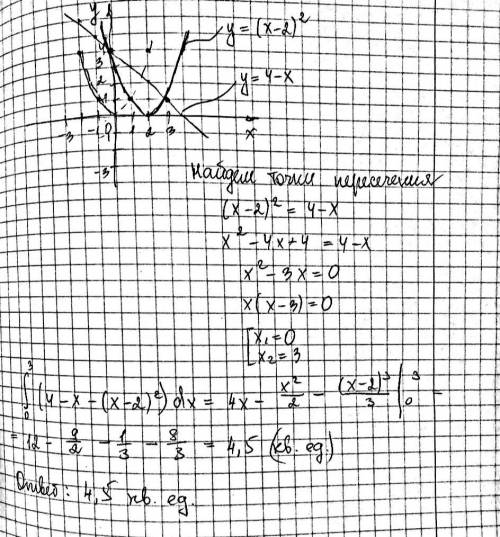 y
y = (x-2)²
4
3
2
1
y = 4-x
-3 -1 0 1 2 3 x
-3
Найдем точки пересечения
(x-2)² = 4-x
x² - 4x + 4 = 4-x
x² - 3x = 0
x(x-3) = 0
[x₁ = 0
x₂ = 3
∫₀³ (4-x-(x-2)²) dx = 4x - x²/2 - (x-2)³/3 |₀³ =
= 12 - 9/2 - 1/3 - 8/3 = 4,5 (кв. ед.)
Ответ: 4,5 кв. ед.